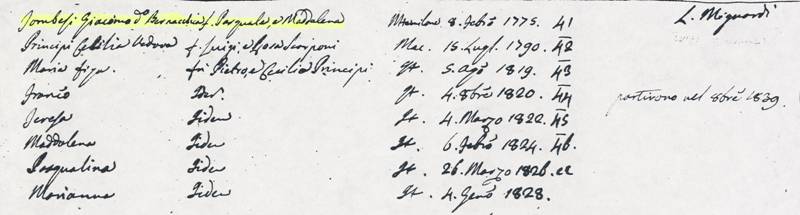 Jombesi Giacomo do Bernacchia f. Pasquale, e Maddalena Montelone 8. Febro 1775. 41 L. Mignardi
Principi Cecilia Vedova f. Luigi, e Rosa Scarponi Mac. 15. Lugl. 1790. 42
Maria figa. fu Pietro, e Cecilia Principi It. 5. Ago 1819. 43
Franco Idem. It. 4. 8bre 1820. 44 partirono nel 8bre 1839.
Teresa Idem It. 4. Marzo 1822. 45
Maddalena Idem It. 6. Febro 1824. 46.
Pasqualina Idem It. 26. Marzo 1826.
Marianna Idem It. 4. Geno 1828.